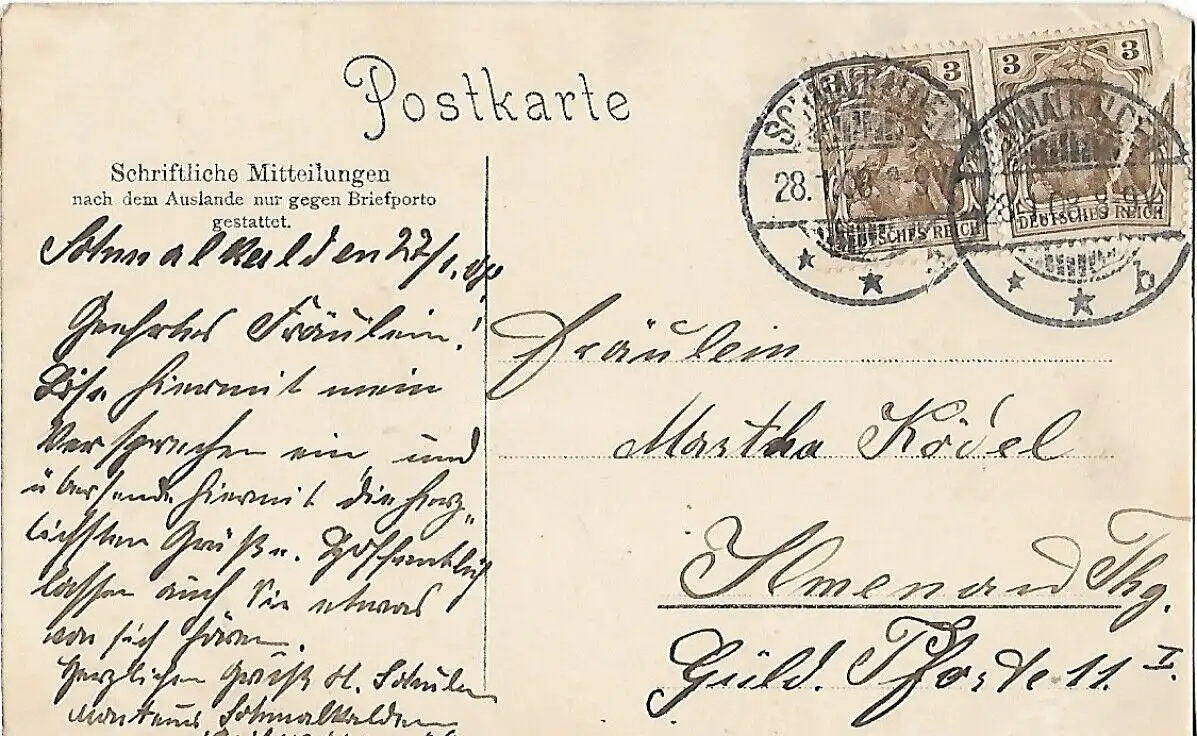 Postkarte
Schriftliche Mitteilungen
nach dem Auslande nur gegen Briefporto
gestattet.
3
3
DEUTSCHES REICH
DEUTSCHES REICH
SCHMALKALDEN
28.
SCHMALKALDEN
b
Schmalkalden 27/1.
Geehrtes Fräulein!
Löse hiermit mein
Versprechen ein und
übersende hiermit die herz-
lichsten Grüße. Hoffentlich
lassen auch Sie etwas
von sich hören.
Herzlichen Gruß H.
Schmalkalden
Fräulein
Martha Ködel
Ilmenau Thg.
Güld. Pforte 11. I.